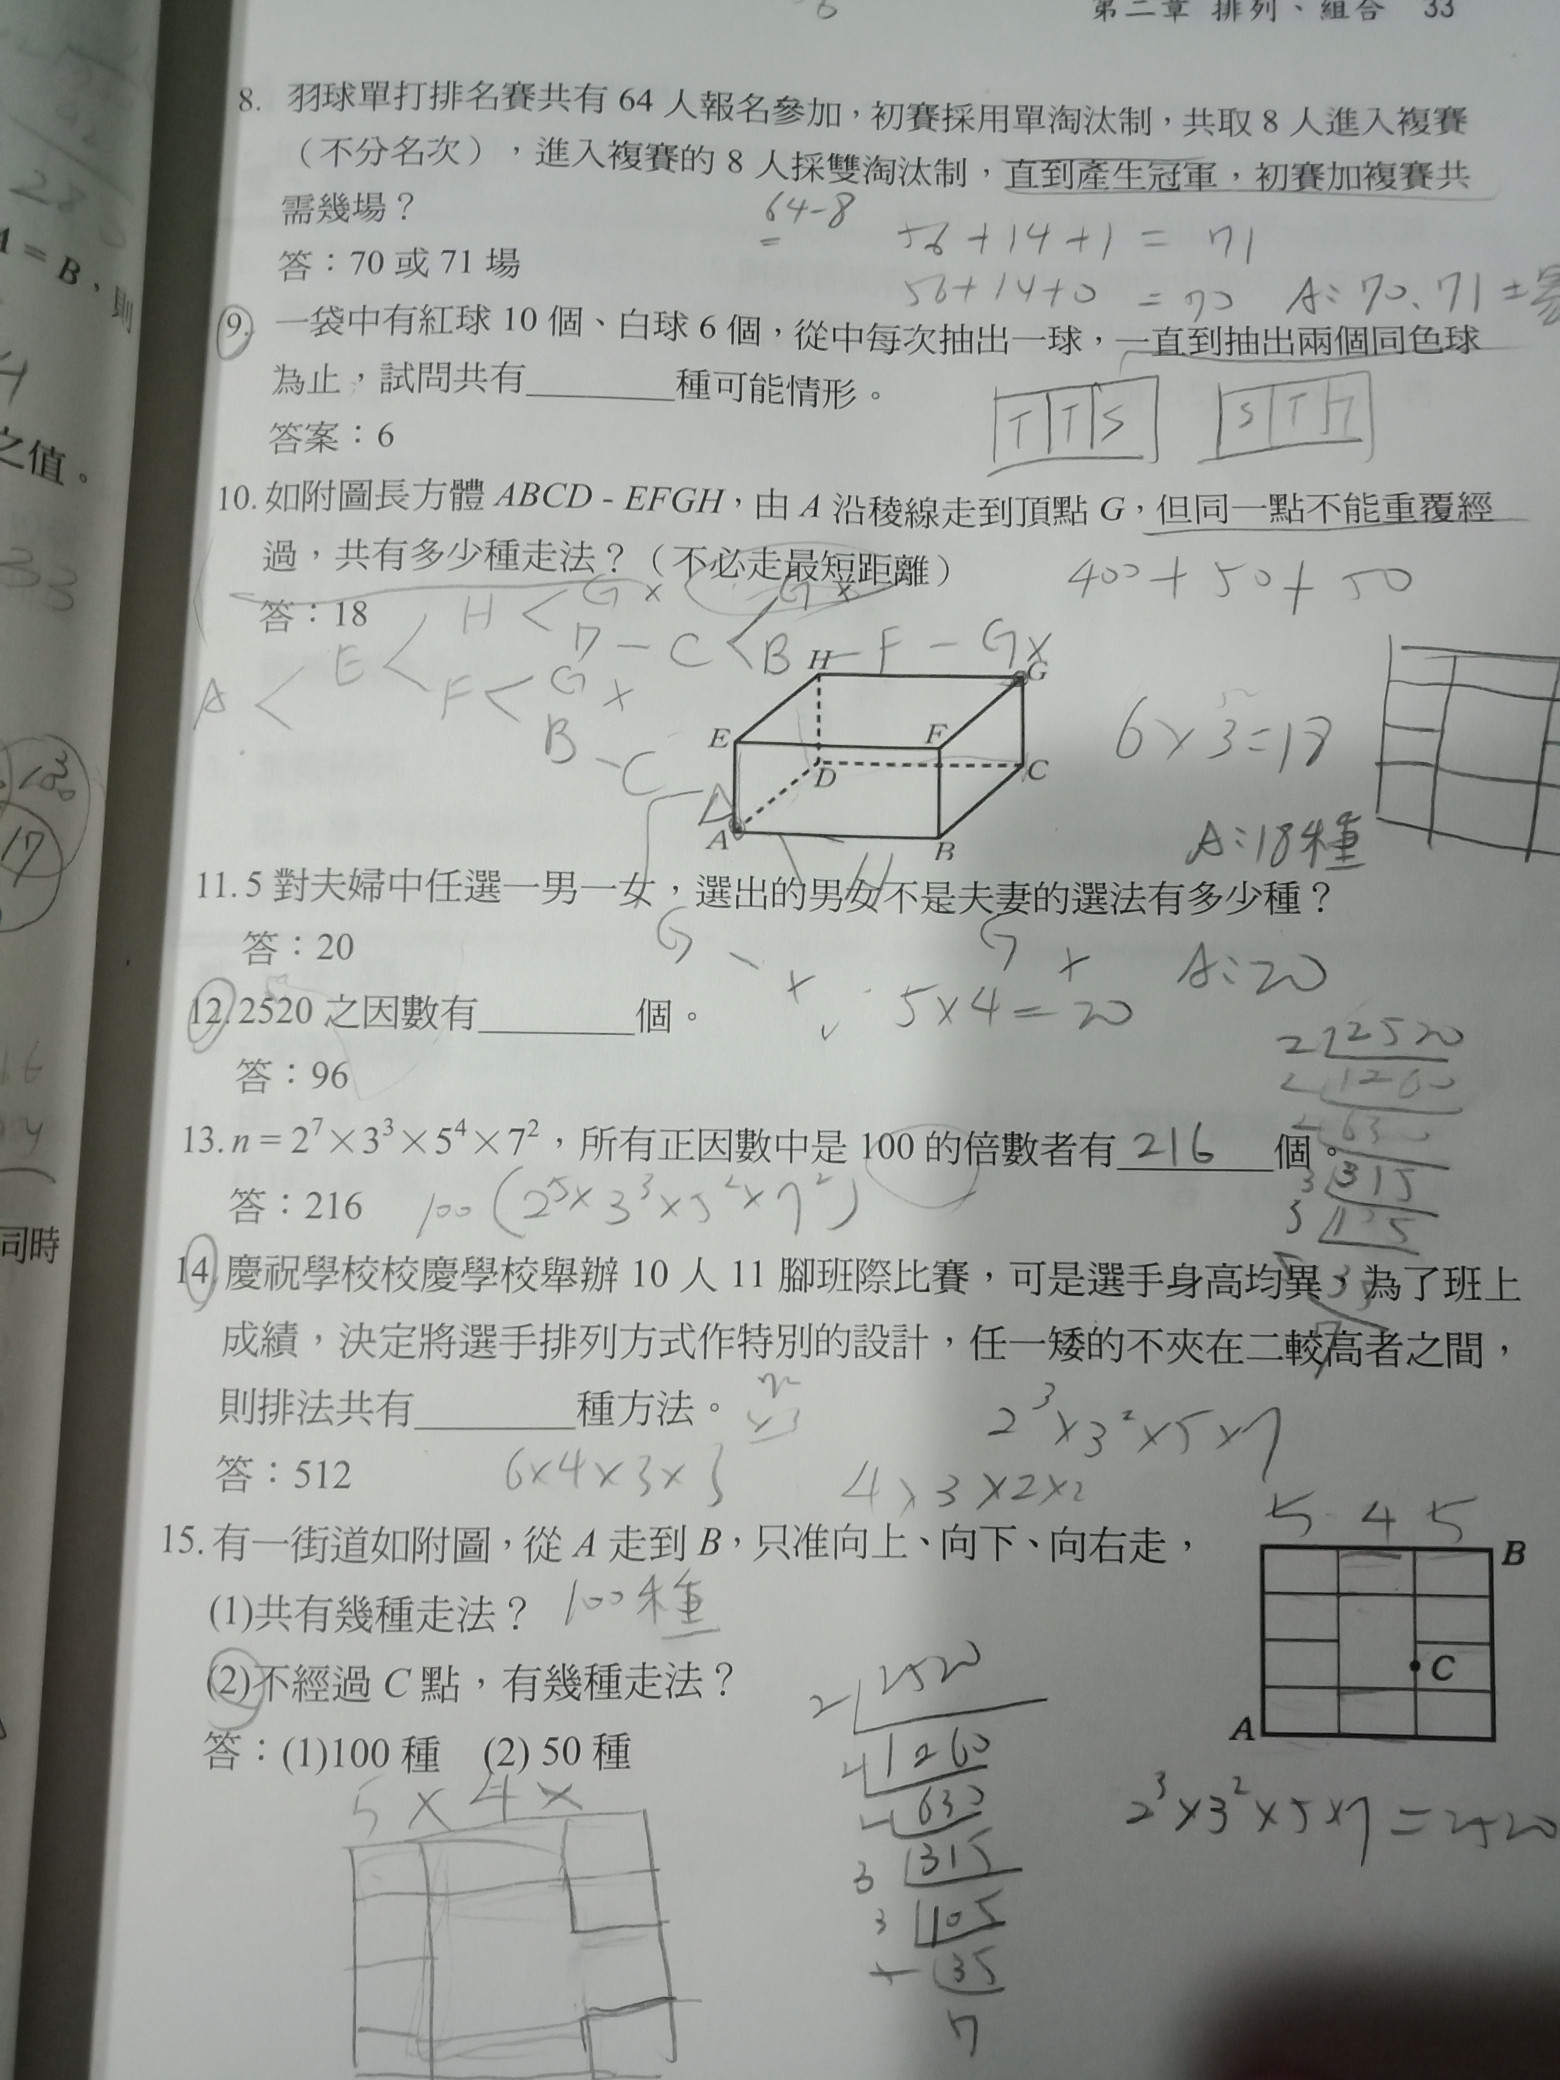 第二章 排列、組合 33
8. 羽球單打排名賽共有 64 人報名參加，初賽採用單淘汰制，共取 8 人進入複賽
（不分名次），進入複賽的 8 人採雙淘汰制，直到產生冠軍，初賽加複賽共
需幾場？
64-8
56+14+1=71
答：70 或 71 場
56+14+0=70 A:70、71 場
9. 一袋中有紅球 10 個、白球 6 個，從中每次抽出一球，一直到抽出兩個同色球
為止，試問共有________種可能情形。
答案：6
10. 如附圖長方體 ABCD - EFGH，由 A 沿稜線走到頂點 G，但同一點不能重覆經
過，共有多少種走法？（不必走最短距離）
400+50+50
答：18
A < E < H < G ×
D - C < G ×
B - F - G ×
F < G ×
B - C
H
G
E
F
D
C
A
B
6×3=18
A:18種
11. 5 對夫婦中任選一男一女，選出的男女不是夫妻的選法有多少種？
答：20
5×4=20
A:20
12. 2520 之因數有________個。
答：96
2 2520
2 1260
13. n = 2⁷×3³×5⁴×7²，所有正因數中是 100 的倍數者有 216 個。
答：216
100(2⁵×3³×5²×7²)
14. 慶祝學校校慶學校舉辦 10 人 11 腳班際比賽，可是選手身高均異，為了班上
成績，決定將選手排列方式作特別的設計，任一矮的不夾在二較高者之間，
則排法共有________種方法。
2³×3²×5×7
答：512
6×4×3×3
4×3×2×2
15. 有一街道如附圖，從 A 走到 B，只准向上、向下、向右走，
5 4 5
B
(1)共有幾種走法？ 100種
(2)不經過 C 點，有幾種走法？
C
A
答：(1)100 種 (2) 50 種
5×4×
2 2520
1260
630
3 315
3 105
35
7
2³×3²×5×7=2520
1 = B，則
之值。
33
17
同時